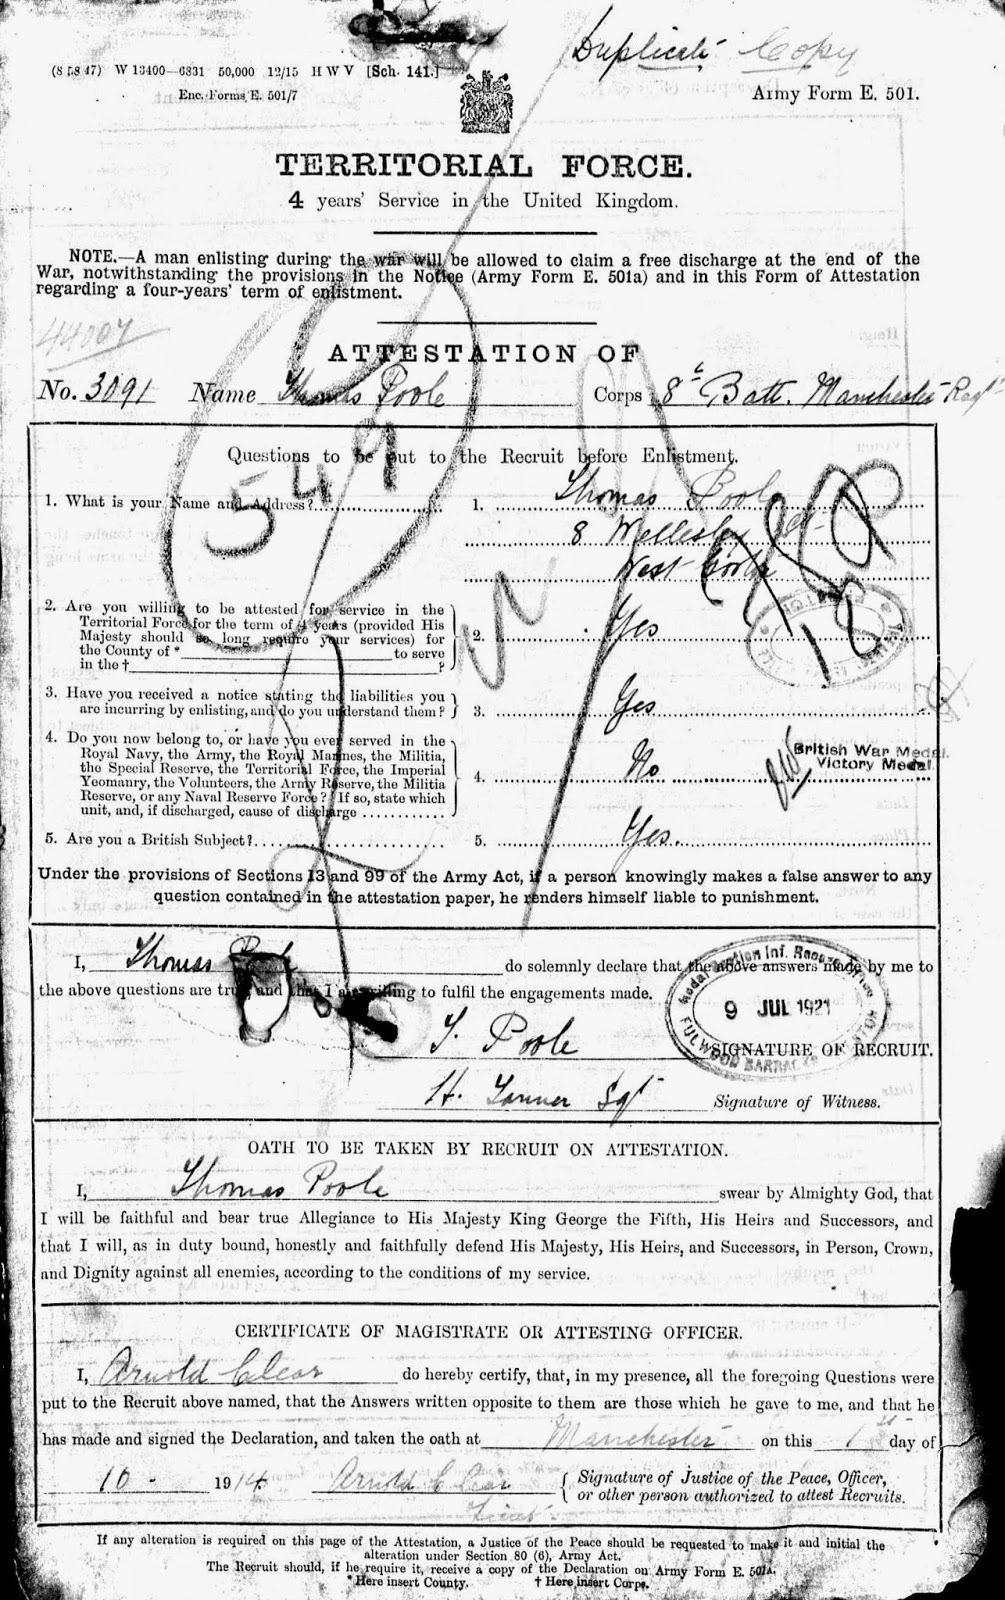 Duplicate Copy
(8 58 47) W 13400—6831 50,000 12/15 H W V [Sch. 141.]
Enc. Forms/E. 501/7
Army Form E. 501.
TERRITORIAL FORCE.
4 years' Service in the United Kingdom.
NOTE.—A man enlisting during the war will be allowed to claim a free discharge at the end of the
War, notwithstanding the provisions in the Notice (Army Form E. 501a) and in this Form of Attestation
regarding a four-years' term of enlistment.
44007
ATTESTATION OF
No. 3091 Name Thomas Poole Corps 8th Batt. Manchester Regt
Questions to be put to the Recruit before Enlistment.
549
1. What is your Name and Address? 1. Thomas Poole
8 Wellesley
West Gorton
2. Are you willing to be attested for service in the
Territorial Force for the term of 4 years (provided His
Majesty should so long require your services) for
the County of * to serve
in the † ?
2. Yes
3. Have you received a notice stating the liabilities you
are incurring by enlisting, and do you understand them?
3. Yes
4. Do you now belong to, or have you ever served in the
Royal Navy, the Army, the Royal Marines, the Militia,
the Special Reserve, the Territorial Force, the Imperial
Yeomanry, the Volunteers, the Army Reserve, the Militia
Reserve, or any Naval Reserve Force? If so, state which
unit, and, if discharged, cause of discharge
4. No
British War Medal.
Victory Medal
5. Are you a British Subject? 5. Yes.
Under the provisions of Sections 13 and 99 of the Army Act, if a person knowingly makes a false answer to any
question contained in the attestation paper, he renders himself liable to punishment.
I, Thomas Poole do solemnly declare that the above answers made by me to
the above questions are true, and that I am willing to fulfil the engagements made.
9 JUL 1921
FULWOOD BARRACKS
T. Poole SIGNATURE OF RECRUIT.
H. Tanner Sgt Signature of Witness.
OATH TO BE TAKEN BY RECRUIT ON ATTESTATION.
I, Thomas Poole swear by Almighty God, that
I will be faithful and bear true Allegiance to His Majesty King George the Fifth, His Heirs and Successors, and
that I will, as in duty bound, honestly and faithfully defend His Majesty, His Heirs, and Successors, in Person, Crown,
and Dignity against all enemies, according to the conditions of my service.
CERTIFICATE OF MAGISTRATE OR ATTESTING OFFICER.
I, Arnold Clear do hereby certify, that, in my presence, all the foregoing Questions were
put to the Recruit above named, that the Answers written opposite to them are those which he gave to me, and that he
has made and signed the Declaration, and taken the oath at Manchester on this 1st day of
10 1914 Arnold Clear
Lieut.
Signature of Justice of the Peace, Officer,
or other person authorized to attest Recruits.
If any alteration is required on this page of the Attestation, a Justice of the Peace should be requested to make it and initial the
alteration under Section 80 (6), Army Act.
The Recruit should, if he require it, receive a copy of the Declaration on Army Form E. 501A.
* Here insert County. † Here insert Corps.